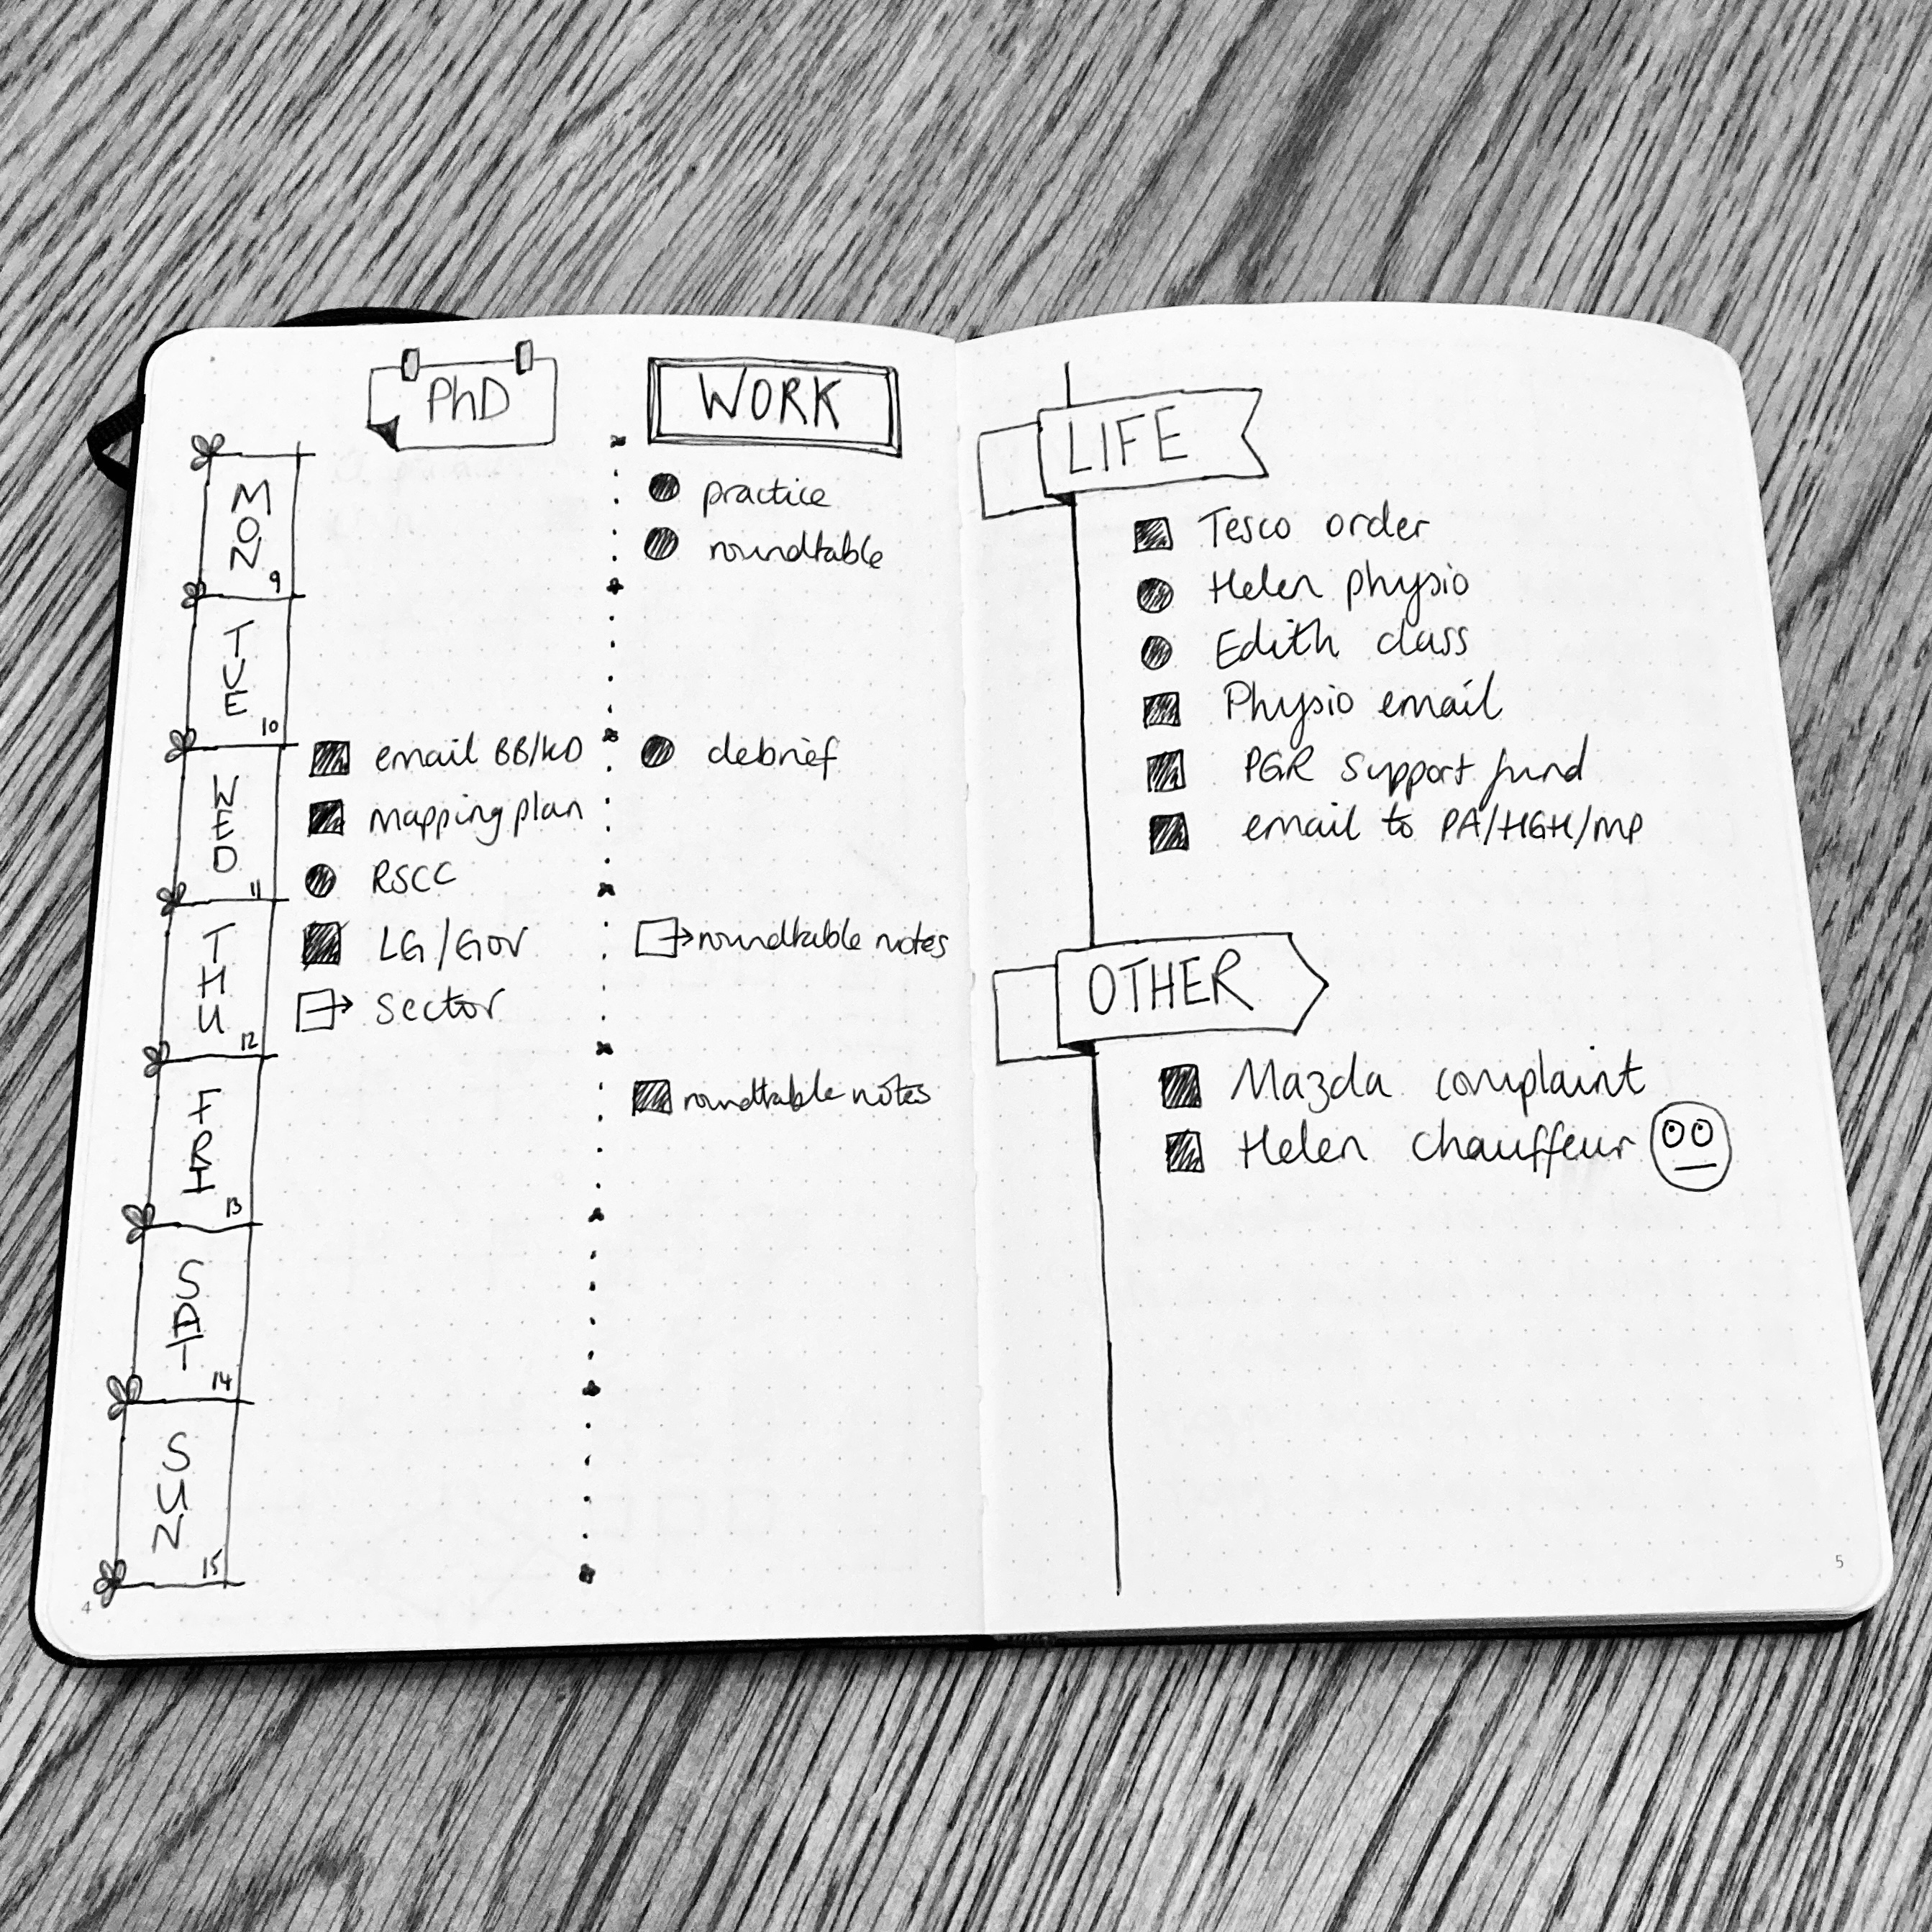 PhD
WORK
MON 9
practice
roundtable
TUE 10
WED 11
email BB/KD
mapping plan
RSCC
debrief
THU 12
LG/GOV
sector
roundtable notes
FRI 13
roundtable notes
SAT 14
SUN 15
4
LIFE
Tesco order
Helen physio
Edith class
Physio email
PGR support fund
email to PA/HGH/MP
OTHER
Mazda complaint
Helen chauffeur
5